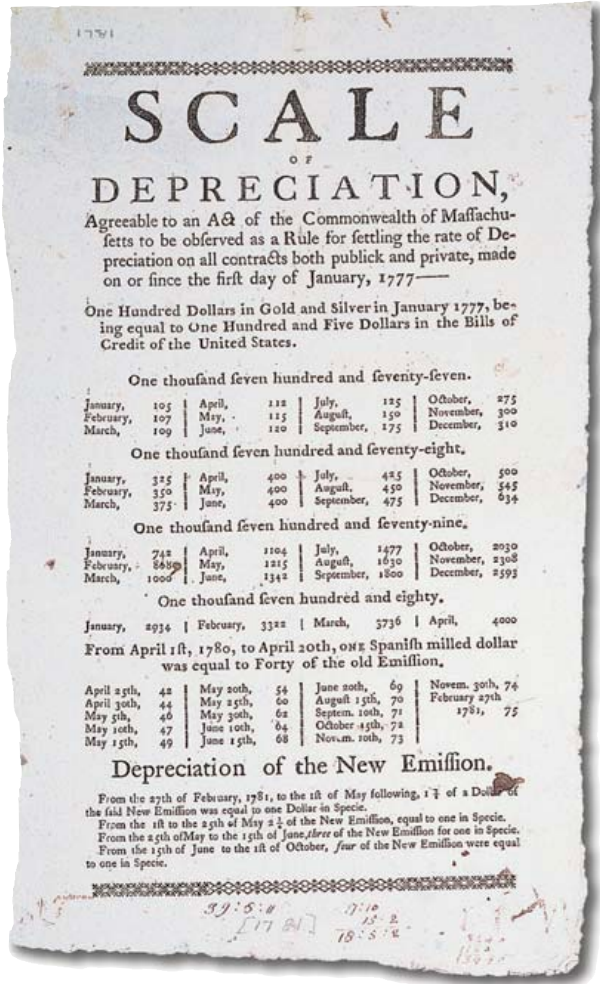 1781
SCALE
OF
DEPRECIATION,
Agreeable to an Act of the Commonwealth of Maſſachu-
ſetts to be obſerved as a Rule for ſettling the rate of De-
preciation on all contracts both publick and private, made
on or ſince the firſt day of January, 1777——
One Hundred Dollars in Gold and Silver in January 1777, be-
ing equal to One Hundred and Five Dollars in the Bills of
Credit of the United States.
One thouſand ſeven hundred and ſeventy-ſeven.
January, 105 | April, 112 | July, 125 | October, 275
February, 107 | May, 115 | Auguſt, 150 | November, 300
March, 109 | June, 120 | September, 175 | December, 310
One thouſand ſeven hundred and ſeventy-eight.
January, 325 | April, 400 | July, 425 | October, 500
February, 350 | May, 400 | Auguſt, 450 | November, 545
March, 375 | June, 400 | September, 475 | December, 634
One thouſand ſeven hundred and ſeventy-nine.
January, 742 | April, 1104 | July, 1477 | October, 2030
February, 868 | May, 1215 | Auguſt, 1630 | November, 2308
March, 1000 | June, 1342 | September, 1800 | December, 2593
One thouſand ſeven hundred and eighty.
January, 2934 | February, 3322 | March, 3736 | April, 4000
From April 1ſt, 1780, to April 20th, ONE Spaniſh milled dollar
was equal to Forty of the old Emiſſion.
April 25th, 42 | May 20th, 54 | June 20th, 69 | Novem. 30th, 74
April 30th, 44 | May 25th, 60 | Auguſt 15th, 70 | February 27th
May 5th, 46 | May 30th, 62 | Septem. 10th, 71 | 1781, 75
May 10th, 47 | June 10th, 64 | October 15th, 72
May 15th, 49 | June 15th, 68 | Novem. 10th, 73
Depreciation of the New Emiſſion.
From the 27th of February, 1781, to the 1ſt of May following, 1 ¾ of a Dollar of
the ſaid New Emiſſion was equal to one Dollar in Specie.
From the 1ſt to the 25th of May 2 ¼ of the New Emiſſion, equal to one in Specie.
From the 25th of May to the 15th of June, three of the New Emiſſion for one in Specie.
From the 15th of June to the 1ſt of October, four of the New Emiſſion were equal
to one in Specie.
39:5:11
[1781]